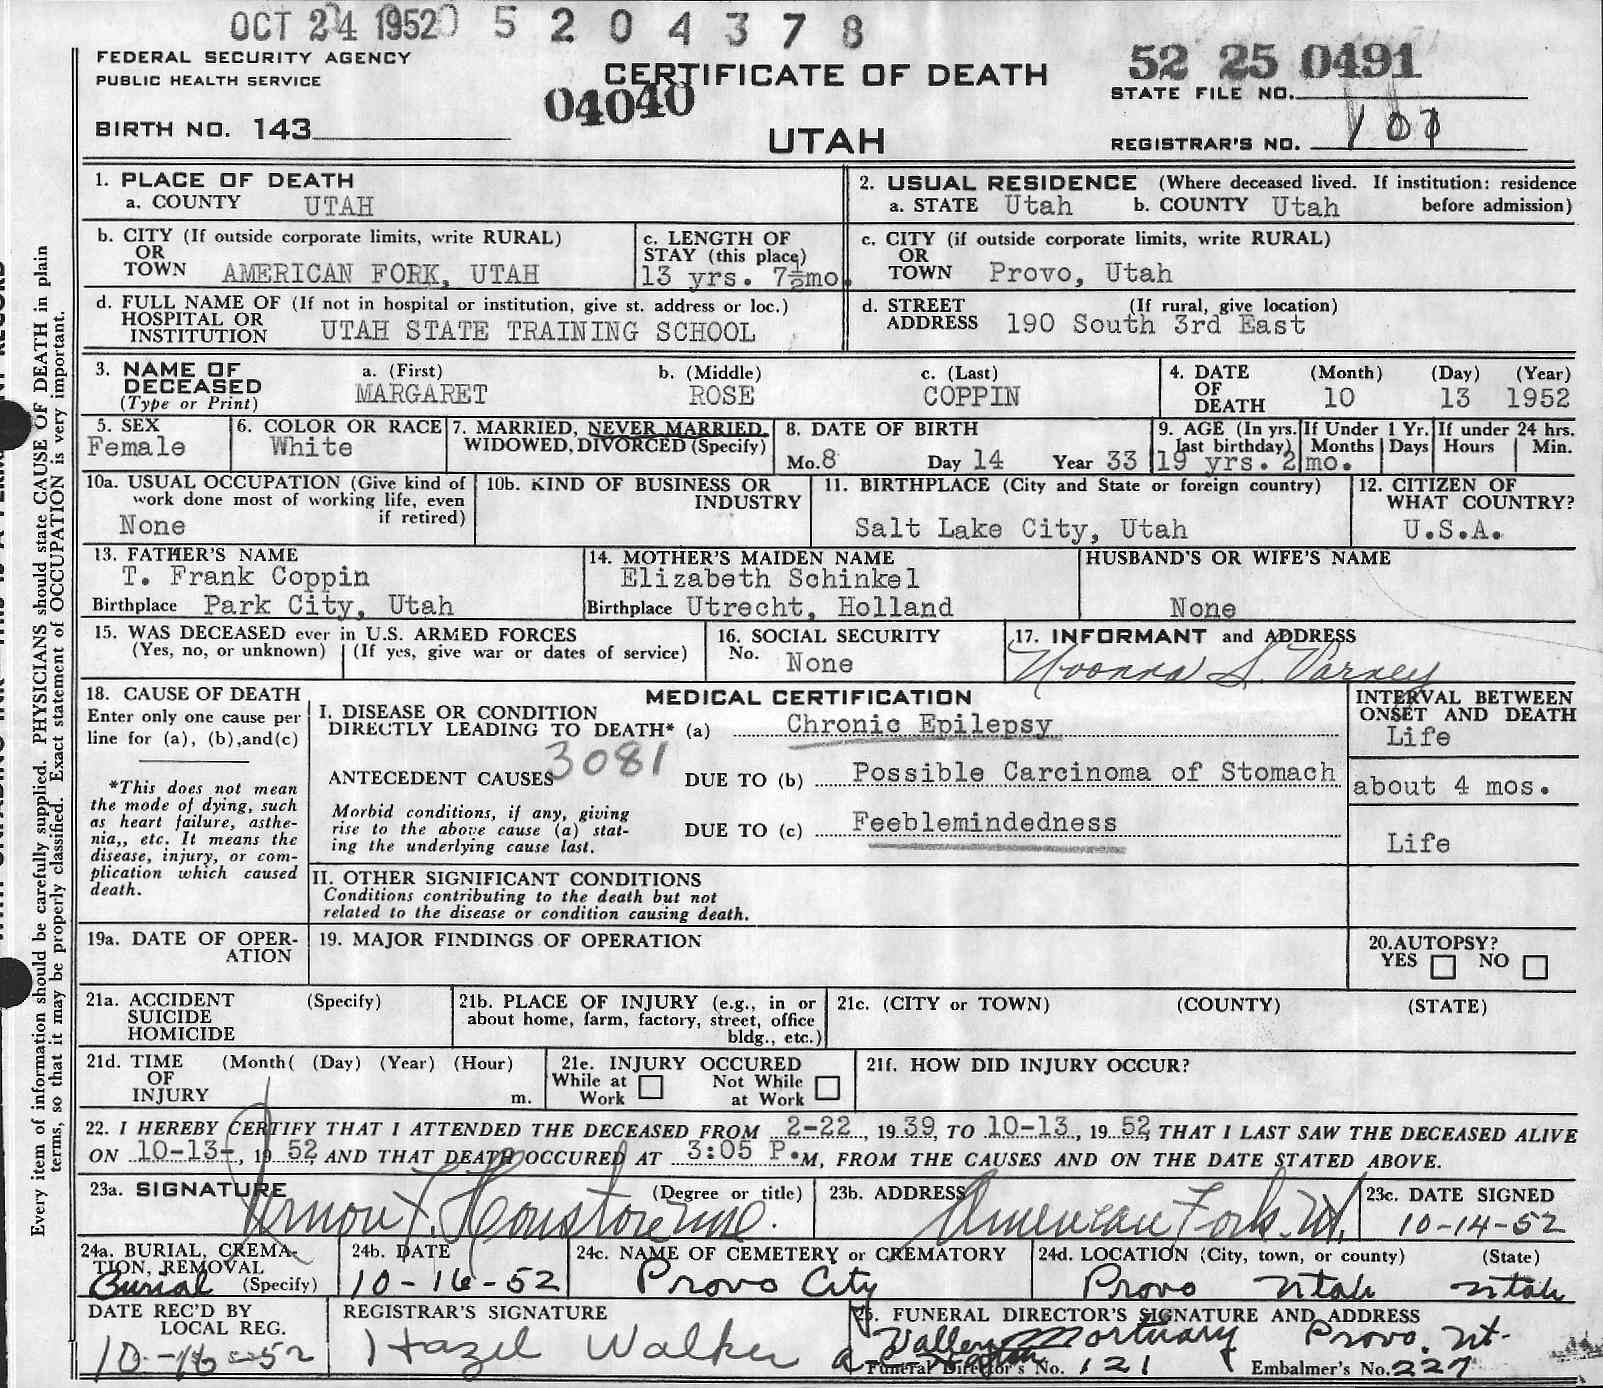 OCT 24 1952 5 2 0 4 3 7 8
FEDERAL SECURITY AGENCY
PUBLIC HEALTH SERVICE
CERTIFICATE OF DEATH
52 25 0491
STATE FILE NO.
04040
BIRTH NO. 143
UTAH
REGISTRAR'S NO.
1. PLACE OF DEATH
a. COUNTY UTAH
2. USUAL RESIDENCE (Where deceased lived. If institution: residence
a. STATE Utah b. COUNTY Utah before admission)
b. CITY (If outside corporate limits, write RURAL)
OR
TOWN AMERICAN FORK, UTAH
c. LENGTH OF
STAY (this place)
13 yrs. 7½mo.
c. CITY (if outside corporate limits, write RURAL)
OR
TOWN Provo, Utah
d. FULL NAME OF (If not in hospital or institution, give st. address or loc.)
HOSPITAL OR
INSTITUTION UTAH STATE TRAINING SCHOOL
d. STREET (If rural, give location)
ADDRESS 190 South 3rd East
3. NAME OF
DECEASED
(Type or Print)
a. (First)
MARGARET
b. (Middle)
ROSE
c. (Last)
COPPIN
4. DATE (Month) (Day) (Year)
OF
DEATH 10 13 1952
5. SEX
Female
6. COLOR OR RACE
White
7. MARRIED, NEVER MARRIED,
WIDOWED, DIVORCED (Specify)
8. DATE OF BIRTH
Mo. 8 Day 14 Year 33
9. AGE (In yrs.
last birthday)
19 yrs. 2 mo.
If Under 1 Yr.
Months Days
If under 24 hrs.
Hours Min.
10a. USUAL OCCUPATION (Give kind of
work done most of working life, even
if retired)
None
10b. KIND OF BUSINESS OR
INDUSTRY
11. BIRTHPLACE (City and State or foreign country)
Salt Lake City, Utah
12. CITIZEN OF
WHAT COUNTRY?
U.S.A.
13. FATHER'S NAME
T. Frank Coppin
Birthplace Park City, Utah
14. MOTHER'S MAIDEN NAME
Elizabeth Schinkel
Birthplace Utrecht, Holland
HUSBAND'S OR WIFE'S NAME
None
15. WAS DECEASED ever in U.S. ARMED FORCES
(Yes, no, or unknown) (If yes, give war or dates of service)
16. SOCIAL SECURITY
No. None
17. INFORMANT and ADDRESS
S. Varney
18. CAUSE OF DEATH
Enter only one cause per
line for (a), (b),and(c)
*This does not mean
the mode of dying, such
as heart failure, asthe-
nia,, etc. It means the
disease, injury, or com-
plication which caused
death.
MEDICAL CERTIFICATION
I. DISEASE OR CONDITION
DIRECTLY LEADING TO DEATH* (a) Chronic Epilepsy
3081
ANTECEDENT CAUSES
DUE TO (b) Possible Carcinoma of Stomach
Morbid conditions, if any, giving
rise to the above cause (a) stat-
ing the underlying cause last.
DUE TO (c) Feeblemindedness
INTERVAL BETWEEN
ONSET AND DEATH
Life
about 4 mos.
Life
II. OTHER SIGNIFICANT CONDITIONS
Conditions contributing to the death but not
related to the disease or condition causing death.
19a. DATE OF OPER-
ATION
19. MAJOR FINDINGS OF OPERATION
20.AUTOPSY?
YES NO
21a. ACCIDENT (Specify)
SUICIDE
HOMICIDE
21b. PLACE OF INJURY (e.g., in or
about home, farm, factory, street, office
bldg., etc.)
21c. (CITY or TOWN) (COUNTY) (STATE)
21d. TIME (Month( (Day) (Year) (Hour)
OF
INJURY m.
21e. INJURY OCCURED
While at Not While
Work at Work
21f. HOW DID INJURY OCCUR?
22. I HEREBY CERTIFY THAT I ATTENDED THE DECEASED FROM 2-22, 1939, TO 10-13, 1952, THAT I LAST SAW THE DECEASED ALIVE
ON 10-13-, 1952 AND THAT DEATH OCCURED AT 3:05 P.M, FROM THE CAUSES AND ON THE DATE STATED ABOVE.
23a. SIGNATURE (Degree or title)
Vernon F. Houston
23b. ADDRESS
American Fork. Ut.
23c. DATE SIGNED
10-14-52
24a. BURIAL, CREMA-
TION, REMOVAL
Burial (Specify)
24b. DATE
10-16-52
24c. NAME OF CEMETERY or CREMATORY
Provo City
24d. LOCATION (City, town, or county) (State)
Provo Utah Utah
DATE REC'D BY
LOCAL REG.
10-16-52
REGISTRAR'S SIGNATURE
Hazel Walker
25. FUNERAL DIRECTOR'S SIGNATURE AND ADDRESS
Valley Mortuary Provo, Ut.
Funeral Director's No. 121 Embalmer's No. 227
Every item of information should be carefully supplied. PHYSICIANS should state CAUSE OF DEATH in plain
terms, so that it may be properly classified. Exact statement of OCCUPATION is very important.